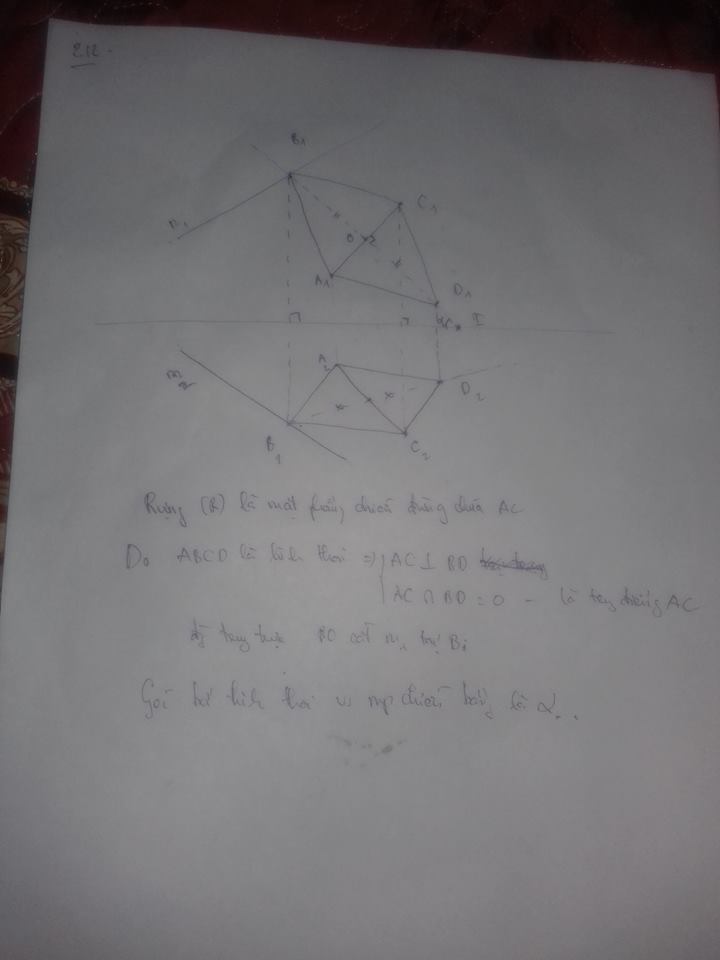 2.12.
B1
C1
m1
O
A1
D1
I
A2
m2
D2
B1
C2
Dựng (R) là mặt phẳng chiếu đứng chứa AC
Do ABCD là hình thoi => AC ⊥ BD
AC ∩ BD = O - là trung điểm AC
BD cắt m1 tại B1
Gọi hình thoi mp chiếu bằng là α...